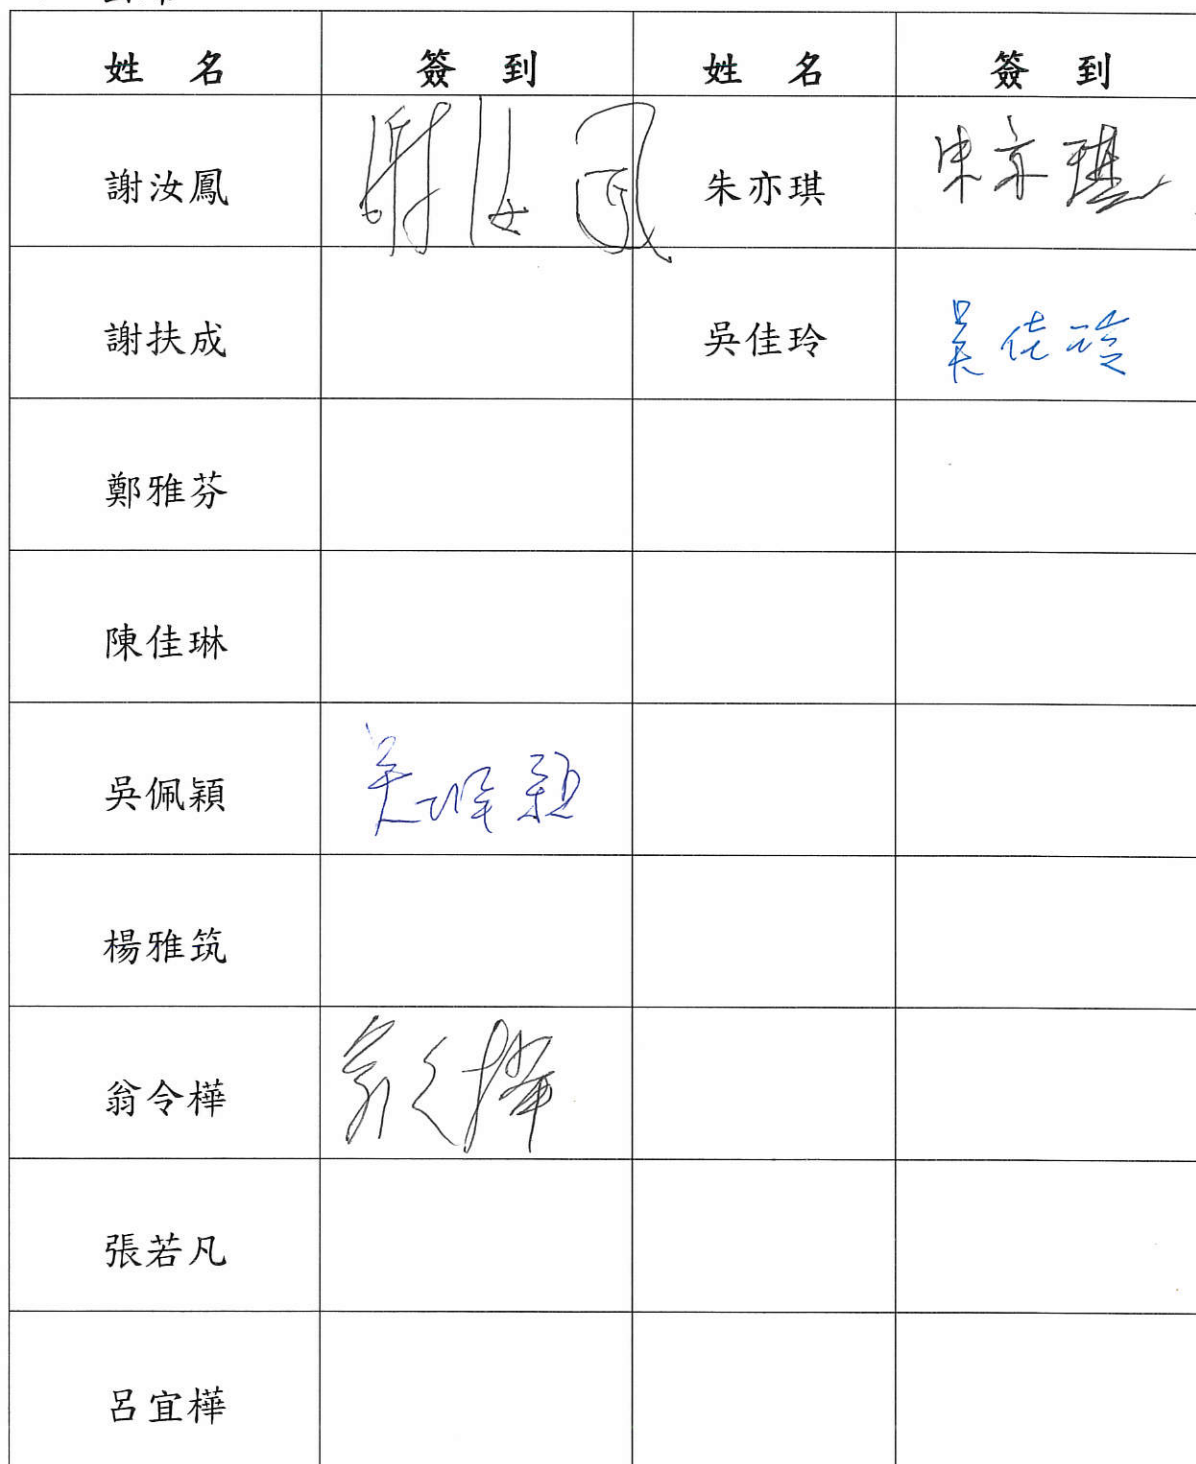 姓 名 簽 到 姓 名 簽 到
謝汝鳳 謝汝鳳 朱亦琪 朱亦琪
謝扶成 吳佳玲 吳佳玲
鄭雅芬
陳佳琳
吳佩穎 吳佩穎
楊雅筑
翁令樺 翁令樺
張若凡
呂宜樺